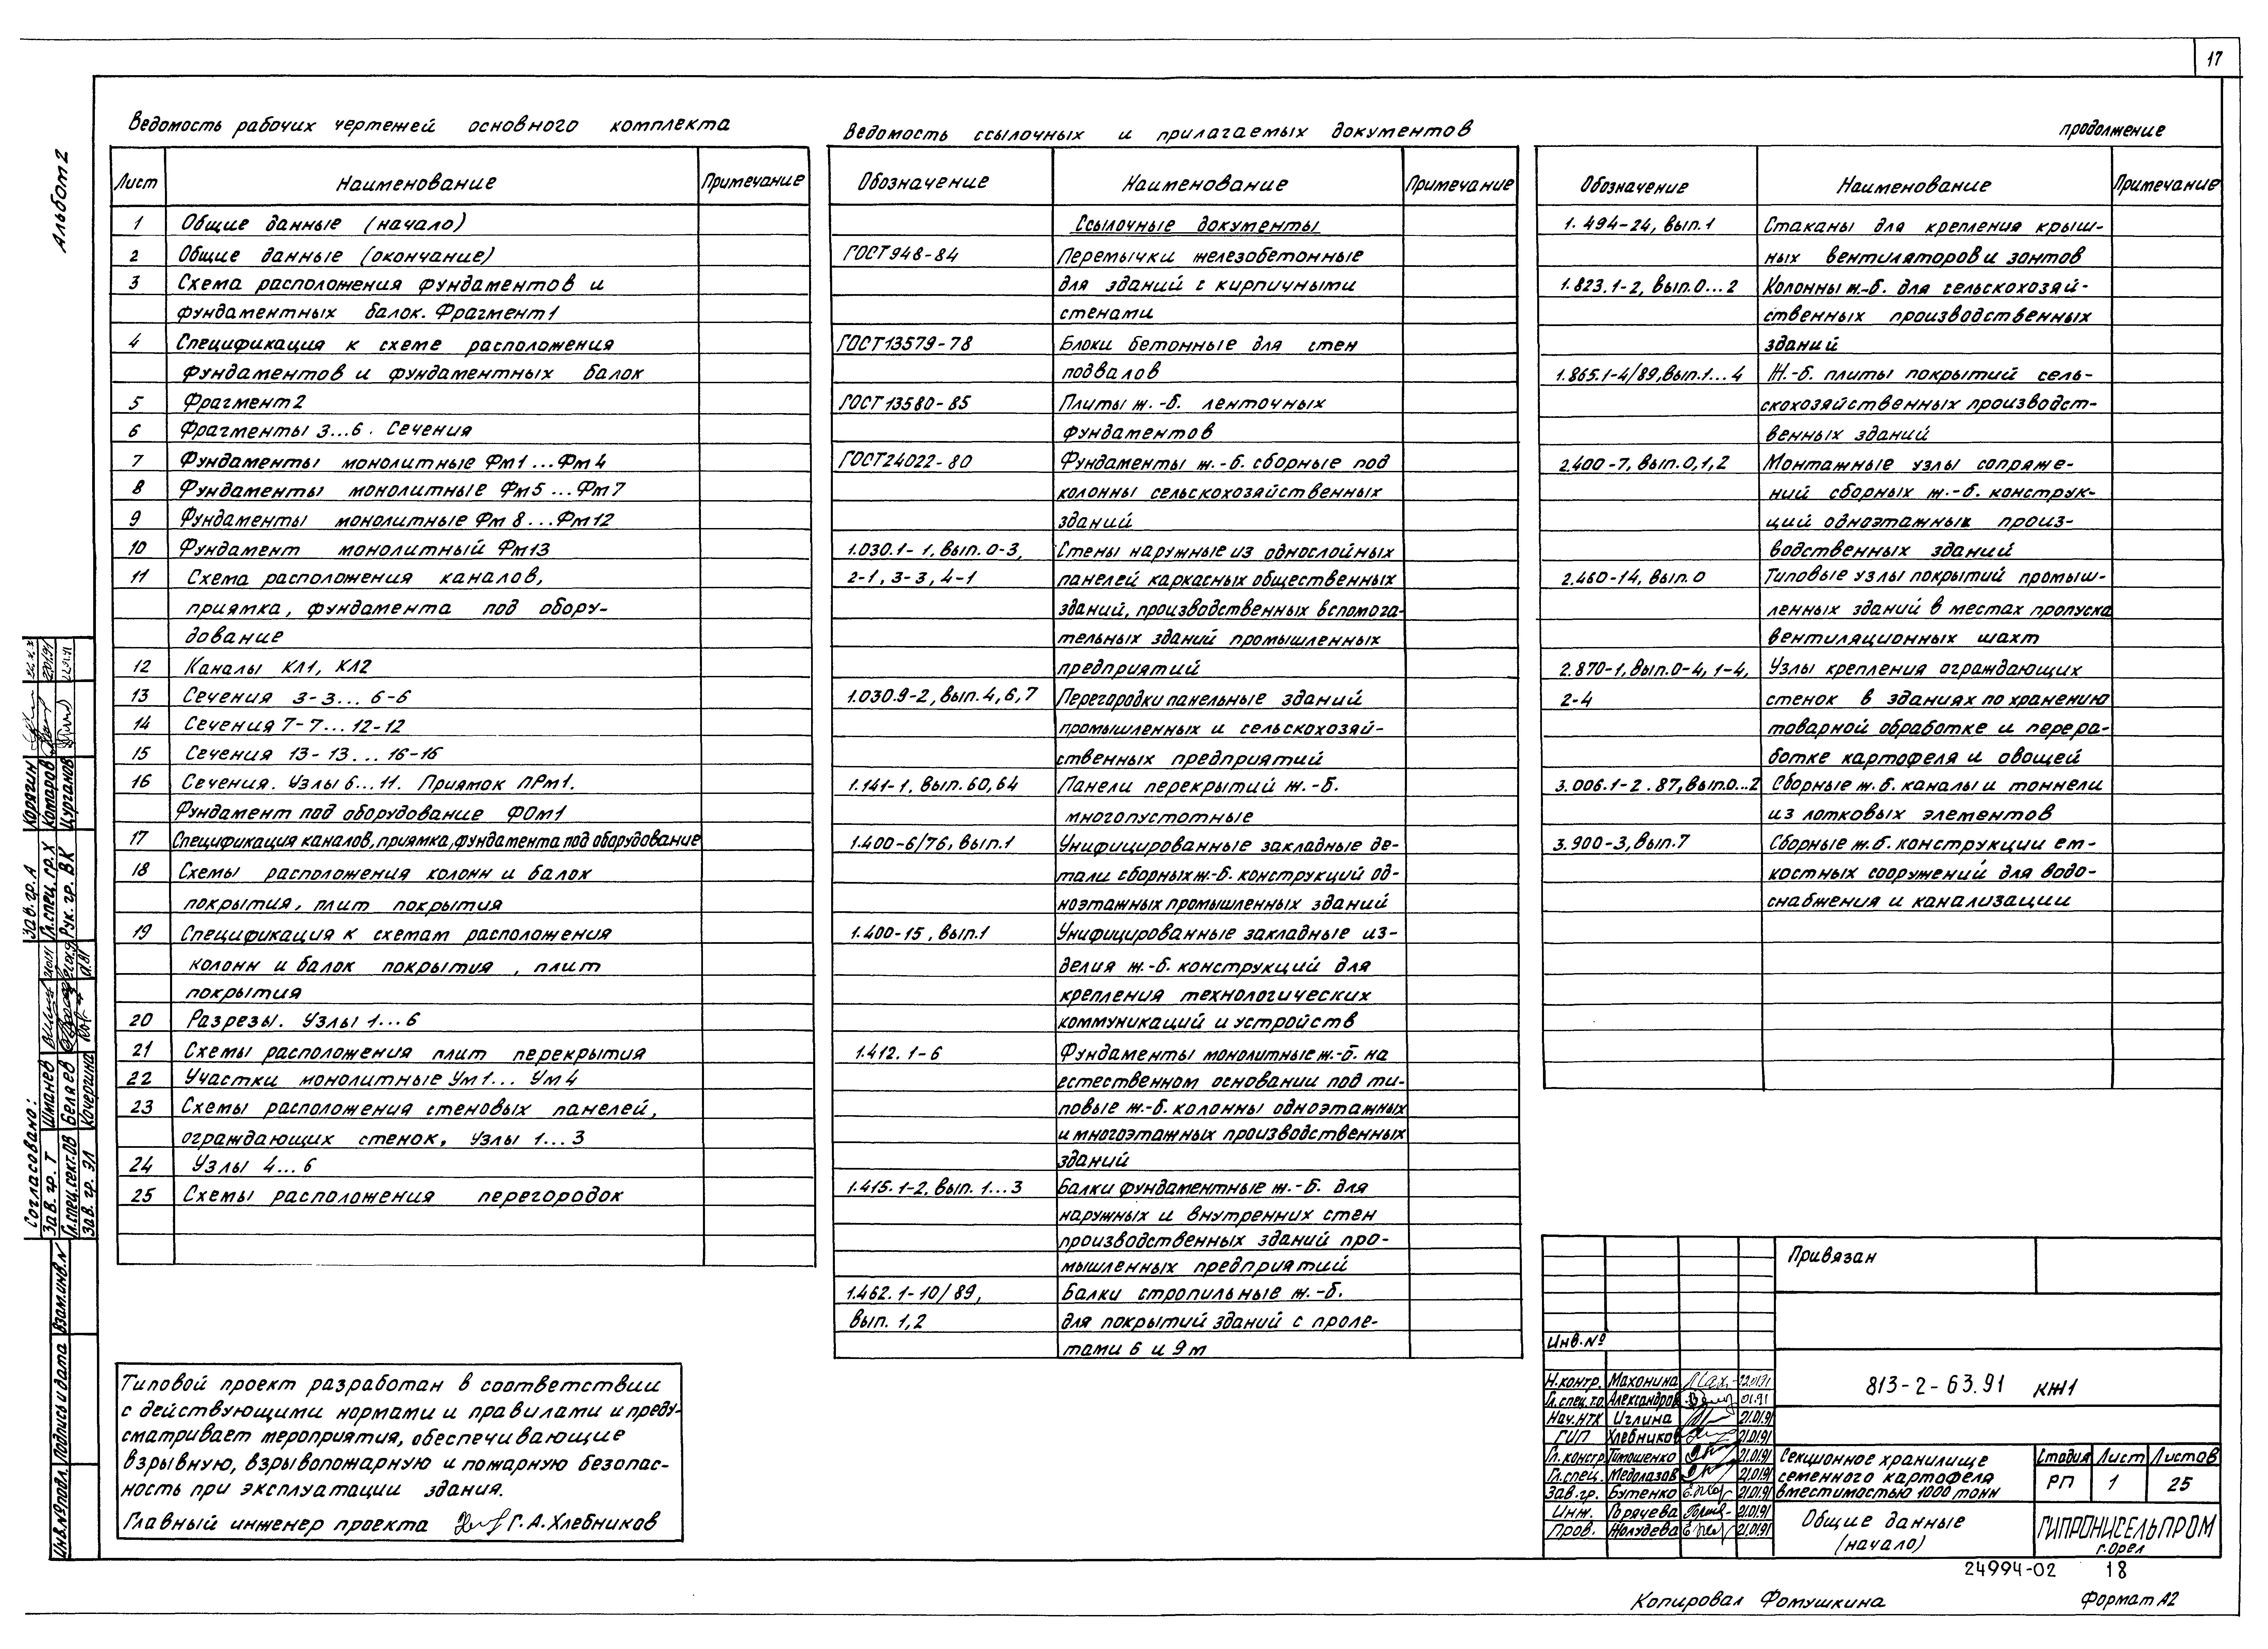 17
Альбом 2
Ведомость рабочих чертежей основного комплекта
Лист Наименование Примечание
1 Общие данные (начало)
2 Общие данные (окончание)
3 Схема расположения фундаментов и
фундаментных балок. Фрагмент 1
4 Спецификация к схеме расположения
фундаментов и фундаментных балок
5 Фрагмент 2
6 Фрагменты 3...6. Сечения
7 Фундаменты монолитные Фм1...Фм4
8 Фундаменты монолитные Фм5...Фм7
9 Фундаменты монолитные Фм8...Фм12
10 Фундамент монолитный Фм13
11 Схема расположения каналов,
приямка, фундамента под обору-
дование
12 Каналы КЛ1, КЛ2
13 Сечения 3-3... 6-6
14 Сечения 7-7... 12-12
15 Сечения 13-13... 16-16
16 Сечения. Узлы 6...11. Приямок ПРм1.
Фундамент под оборудование ФОм1
17 Спецификация каналов, приямка, фундамента под оборудование
18 Схемы расположения колонн и балок
покрытия, плит покрытия
19 Спецификация к схемам расположения
колонн и балок покрытия, плит
покрытия
20 Разрезы. Узлы 1...6
21 Схемы расположения плит перекрытия
22 Участки монолитные Ум1... Ум4
23 Схемы расположения стеновых панелей,
ограждающих стенок, Узлы 1...3
24 Узлы 4...6
25 Схемы расположения перегородок
Типовой проект разработан в соответствии
с действующими нормами и правилами и преду-
сматривает мероприятия, обеспечивающие
взрывную, взрывопожарную и пожарную безопас-
ность при эксплуатации здания.
Главный инженер проекта Г.А. Хлебников
Ведомость ссылочных и прилагаемых документов
Обозначение Наименование Примечание
Ссылочные документы
ГОСТ 948-84 Перемычки железобетонные
для зданий с кирпичными
стенами
ГОСТ 13579-78 Блоки бетонные для стен
подвалов
ГОСТ 13580-85 Плиты ж.-б. ленточных
фундаментов
ГОСТ 24022-80 Фундаменты ж.-б. сборные под
колонны сельскохозяйственных
зданий
1.030.1-1, вып. 0-3, Стены наружные из однослойных
2-1, 3-3, 4-1 панелей каркасных общественных
зданий, производственных вспомога-
тельных зданий промышленных
предприятий
1.030.9-2, вып. 4,6,7 Перегородки панельные зданий
промышленных и сельскохозяй-
ственных предприятий
1.141-1, вып. 60,64 Панели перекрытий ж.-б.
многопустотные
1.400-6/76, вып.1 Унифицированные закладные де-
тали сборных ж.-б. конструкций од-
ноэтажных промышленных зданий
1.400-15, вып.1 Унифицированные закладные из-
делия ж.-б. конструкций для
крепления технологических
коммуникаций и устройств
1.412.1-6 Фундаменты монолитные ж.-б. на
естественном основании под ти-
повые ж.-б. колонны одноэтажных
и многоэтажных производственных
зданий
1.415.1-2, вып. 1...3 Балки фундаментные ж.-б. для
наружных и внутренних стен
производственных зданий про-
мышленных предприятий
1.462.1-10/89, Балки стропильные ж.-б.
вып. 1,2 для покрытий зданий с проле-
тами 6 и 9 м
продолжение
Обозначение Наименование Примечание
1.494-24, вып.1 Стаканы для крепления крыш-
ных вентиляторов и зонтов
1.823.1-2, вып.0...2 Колонны ж.-б. для сельскохозяй-
ственных производственных
зданий
1.865.1-4/89, вып.1...4 Ж.-б. плиты покрытий сель-
скохозяйственных производст-
венных зданий
2.400-7, вып.0,1,2 Монтажные узлы сопряже-
ний сборных ж.-б. конструк-
ций одноэтажных произ-
водственных зданий
2.460-14, вып.0 Типовые узлы покрытий промыш-
ленных зданий в местах пропуска
вентиляционных шахт
2.870-1, вып.0-4, 1-4, Узлы крепления ограждающих
2-4 стенок в зданиях по хранению
товарной обработке и перера-
ботке картофеля и овощей
3.006.1-2.87, вып.0...2 Сборные ж.б. каналы и тоннели
из лотковых элементов
3.900-3, вып.7 Сборные ж.б. конструкции ем-
костных сооружений для водо-
снабжения и канализации
Согласовано:
Зав. гр. А Корягин
Гл.спец. гр. Х Комаров 22.01.91
Рук. гр. ВК Цурганов 22.01.91
Зав. гр. Т Шманев
Гл.спец.сект.ОВ Беляев
Зав. гр. ЭЛ Кочергина
Инв.№подл. Подпись и дата Взам.инв.№
Привязан
Инв.№
813-2-63.91 КЖ1
Н.контр. Махонина 22.01.91
Гл.спец.т.о. Александров 01.91
Нач.НТК Иглина 21.01.91
ГИП Хлебников 21.01.91
Гл.констр. Тимошенко 21.01.91
Гл.спец. Медолазов 21.01.91
Зав.гр. Бутенко 21.01.91
Инж. Горячева 21.01.91
Пров. Жолудева 21.01.91
Секционное хранилище
семенного картофеля
вместимостью 1000 тонн
Стадия Лист Листов
РП 1 25
Общие данные
(начало)
ГИПРОНИСЕЛЬПРОМ
г.Орел
24994-02 18
Копировал Фомушкина Формат А2